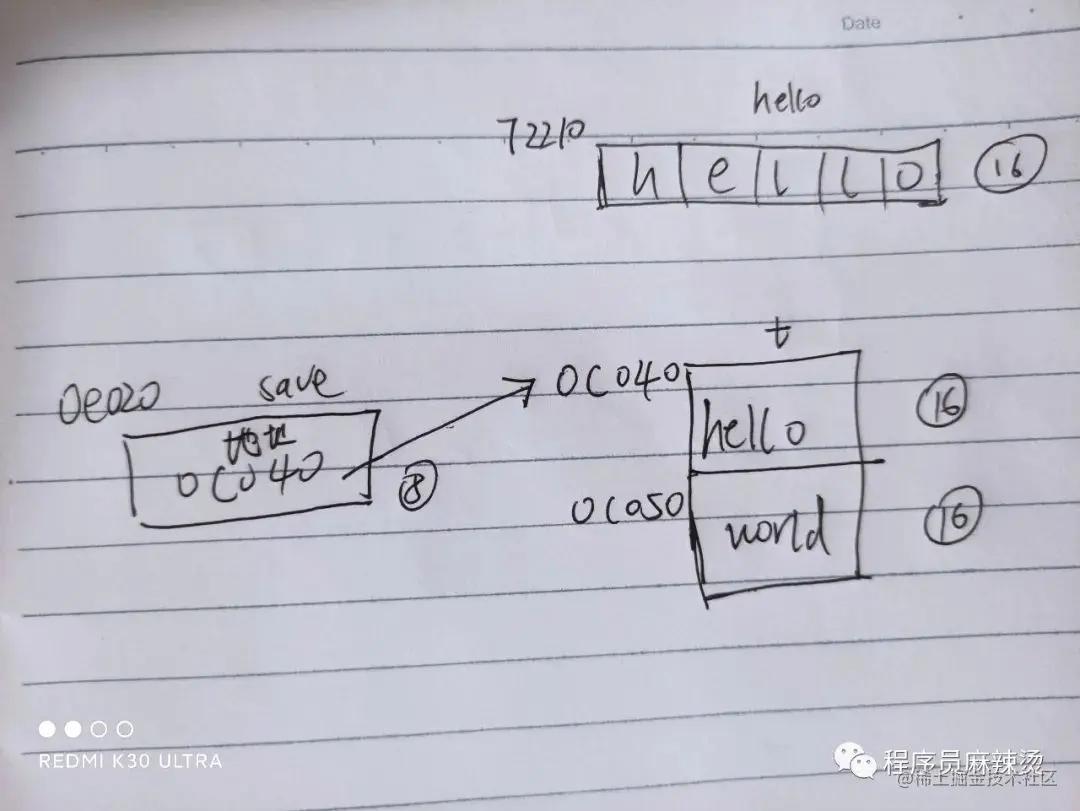 Date
hello
72210
h e l l o
16
t
0e020
save
地址
0C040
8
0C040
hello
16
0C050
world
16
REDMI K30 ULTRA
程序员麻辣烫
@稀土掘金技术社区